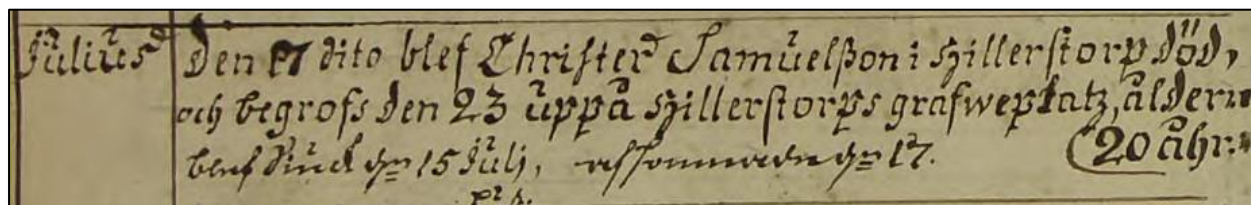 Julius Den 17 dito blef Christer Samuelßon i Hillerstorp död,
och begrofs den 23 uppå Hillerstorps grafweplatz, åldern
blef siuck den 15 Julj, afsomnade den 17. (20 åhr.